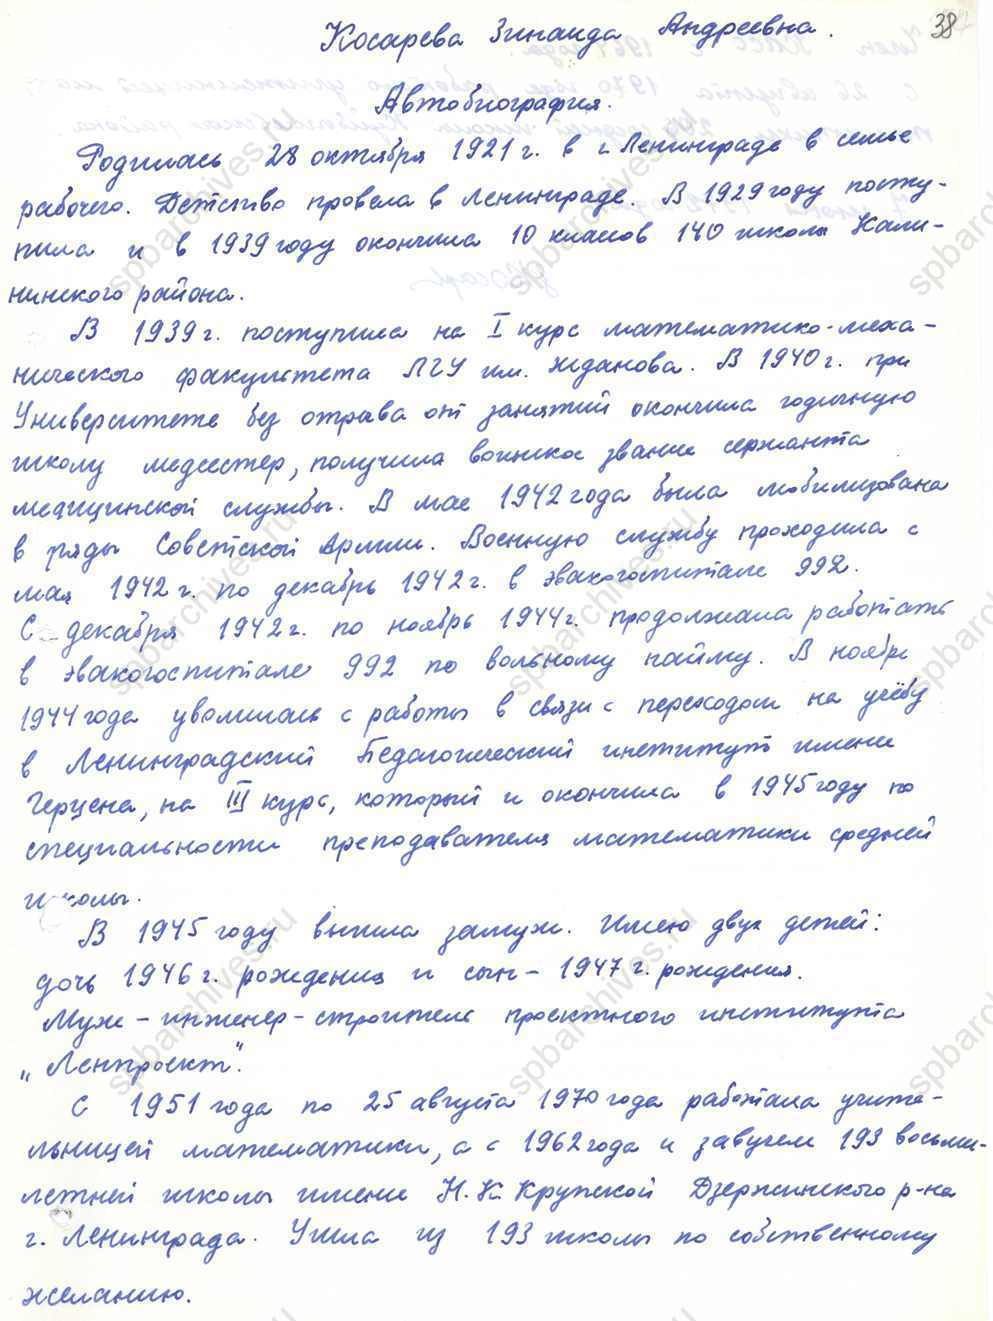 38
Косарева Зинаида Андреевна.
Автобиография.
Родилась 28 октября 1921 г. в г. Ленинграде в семье
рабочего. Детство провела в Ленинграде. В 1929 году посту-
пила и в 1939 году окончила 10 классов 140 школы Кали-
нинского района.
В 1939 г. поступила на I курс математико-меха-
нического факультета ЛГУ им. Жданова. В 1940 г. при
Университете без отрыва от занятий окончила годичную
школу медсестер, получила воинское звание сержанта
медицинской службы. В мае 1942 года была мобилизована
в ряды Советской Армии. Военную службу проходила с
мая 1942 г. по декабрь 1942 г. в эвакогоспитале 992.
С декабря 1942 г. по ноябрь 1944 г. продолжала работать
в эвакогоспитале 992 по вольному найму. В ноябре
1944 года уволилась с работы в связи с переходом на учёбу
в Ленинградский Педагогический институт имени
Герцена, на III курс, который и окончила в 1945 году по
специальности преподавателя математики средней
школы.
В 1945 году вышла замуж. Имею двух детей:
дочь 1946 г. рождения и сын - 1947 г. рождения.
Муж - инженер-строитель проектного института
„Ленпроект".
С 1951 года по 25 августа 1970 года работала учите-
льницей математики, а с 1962 года и завучем 193 восьми-
летней школы имени Н.К. Крупской Дзержинского р-на
г. Ленинграда. Ушла из 193 школы по собственному
желанию.
spbarchives.ru